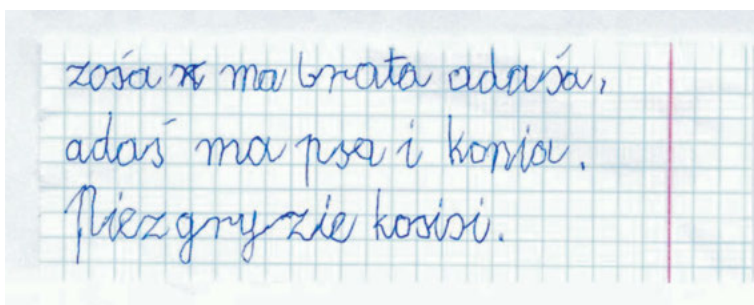 zośa ma brata adaśa,
adaś ma psa i konia.
Piezgryzie kosisi.